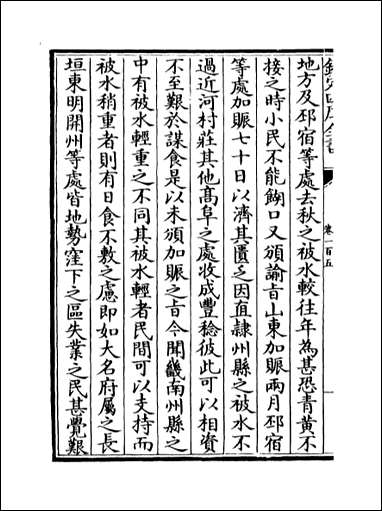 欽定四庫全書
卷一百五
地方及邳宿等處去秋之被水較往年為甚恐青黃不
接之時小民不能餬口又頒諭旨山東加賑兩月邳宿
等處加賑七十日以濟其匱乏因直隷州縣之被水不
過近河村莊其他髙阜之處收成豐稔彼此可以相資
不至艱於謀食是以未頒加賑之旨今聞畿南州縣之
中有被水輕重之不同其被水輕者民間可以支持而
被水稍重者則有日食不敷之慮即如大名府屬之長
垣東明開州等處皆地勢窪下之區失業之民甚覺艱